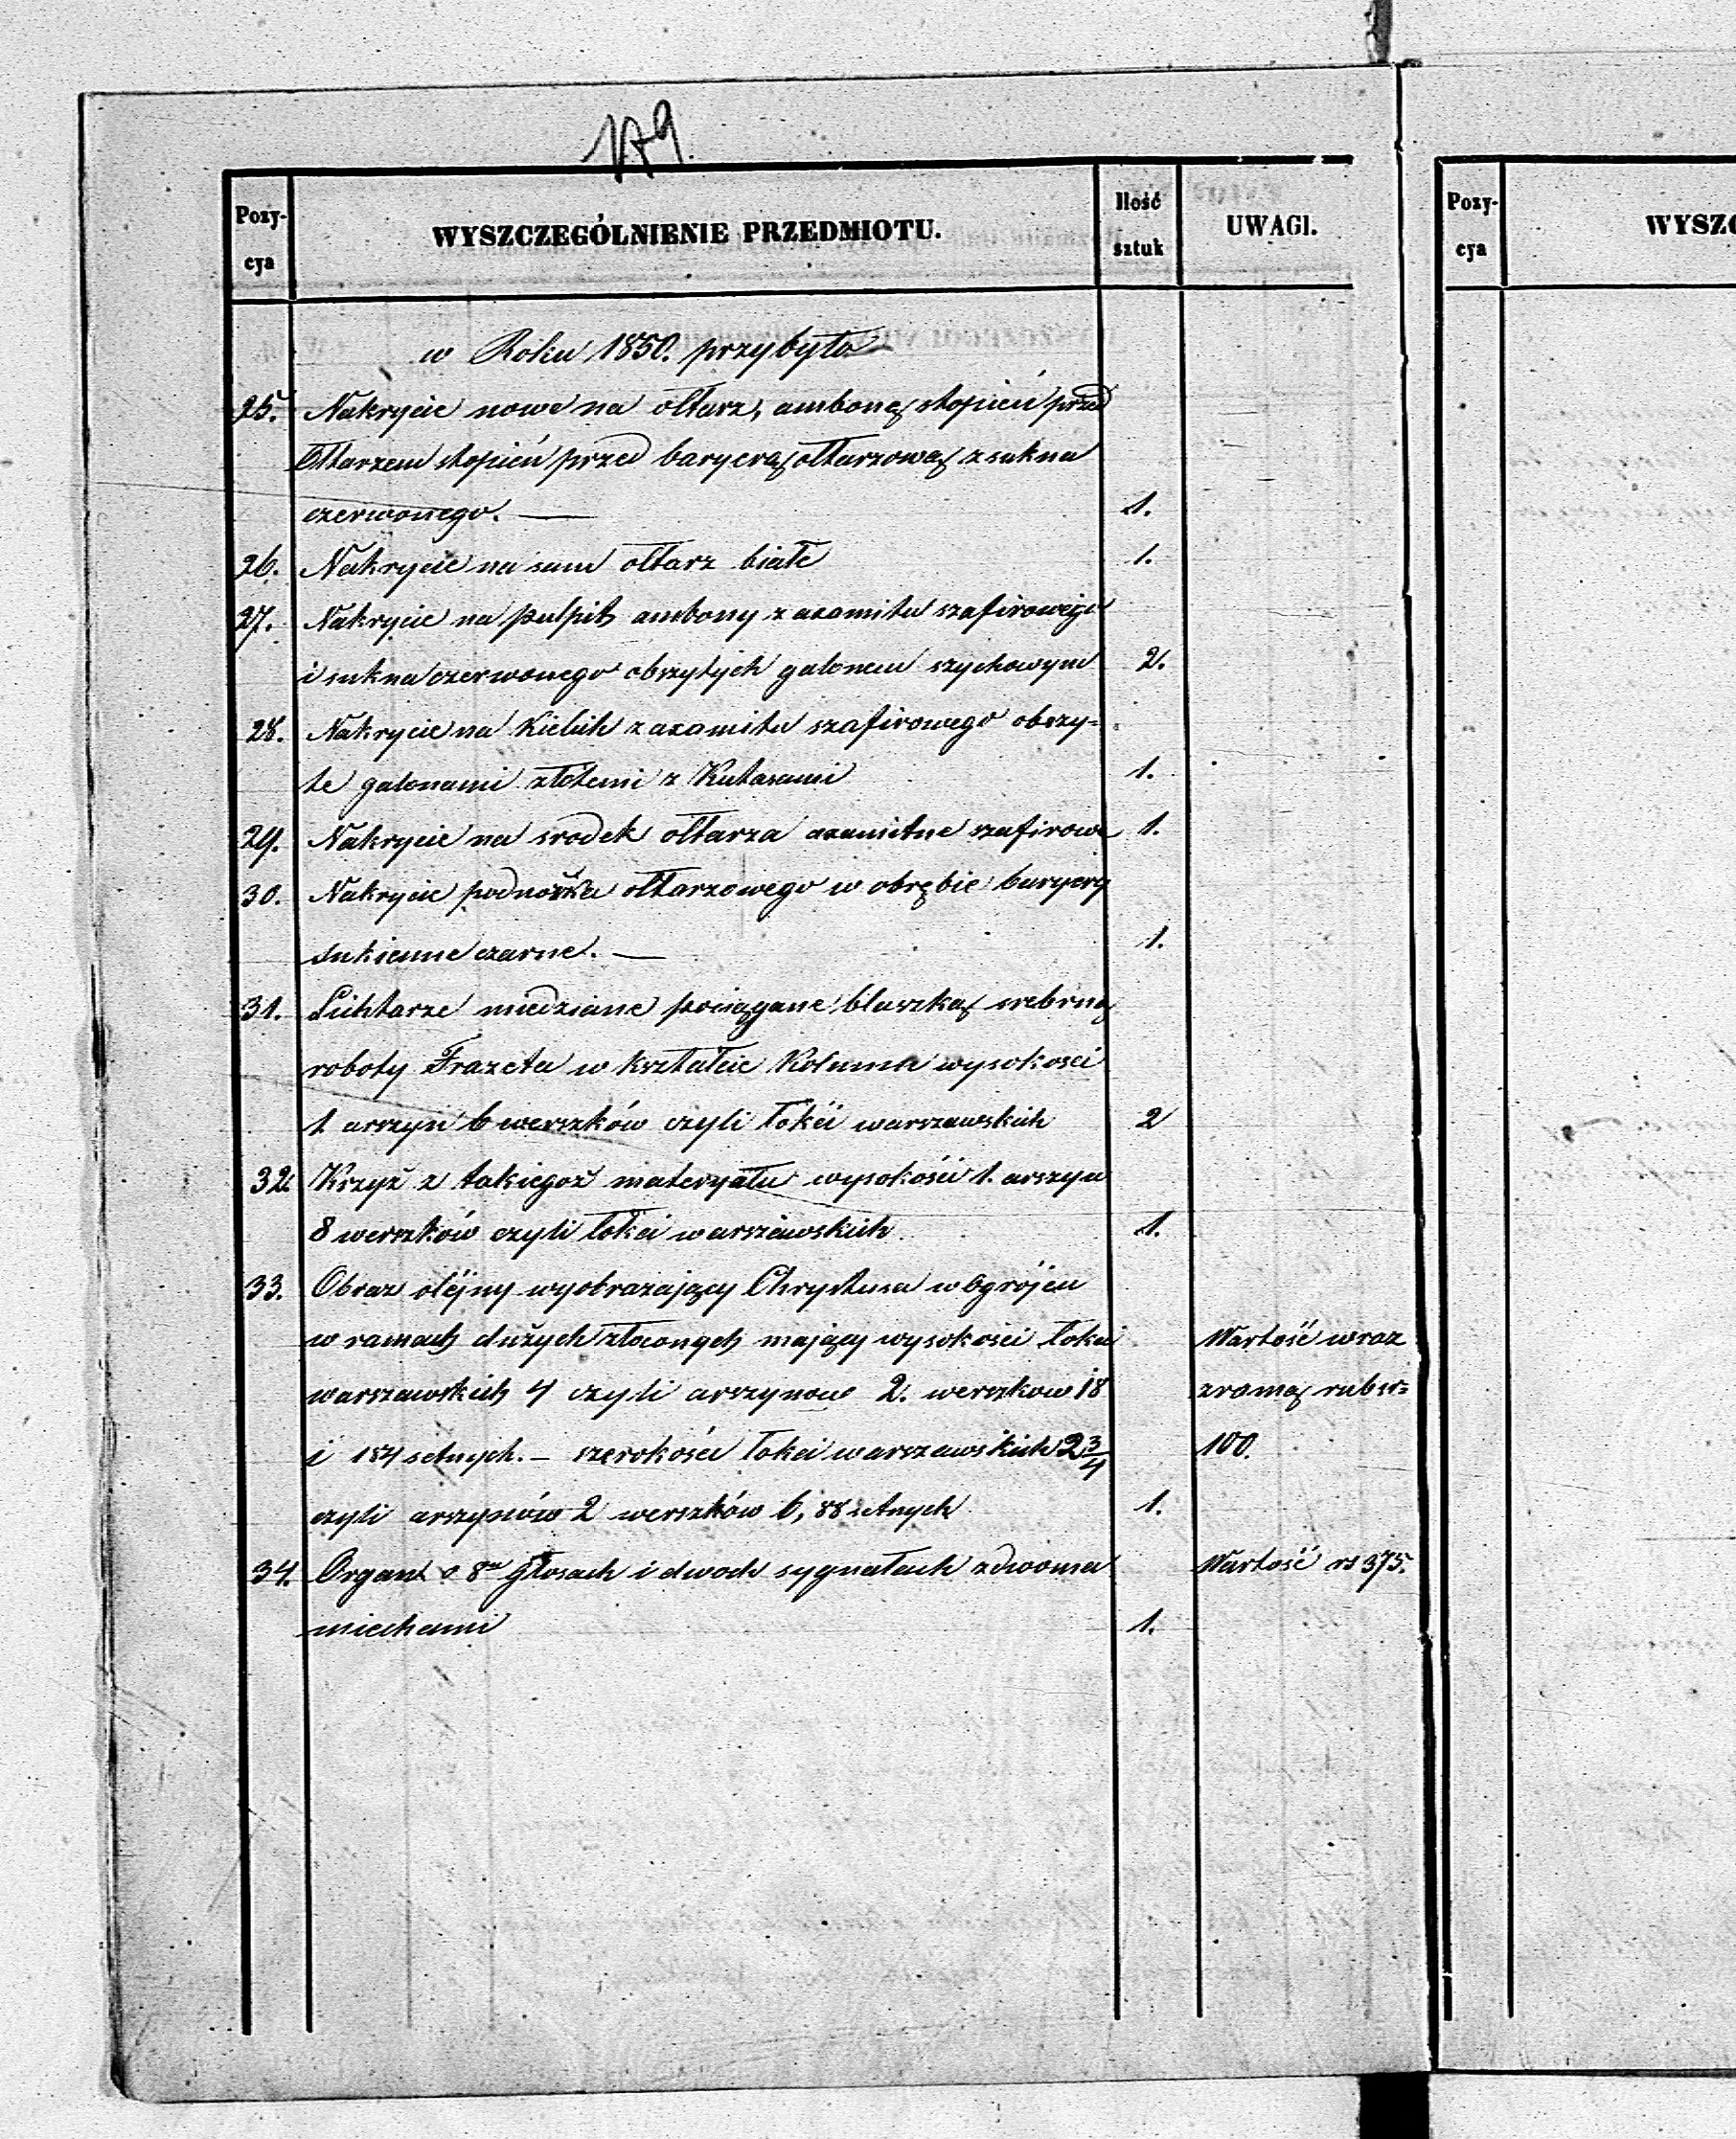 179.
Pozy-cya WYSZCZEGÓLNIENIE PRZEDMIOTU. Ilość sztuk UWAGI. Pozy-cya WYSZC
w Roku 1850. przybyło
25. Nakrycie nowe na ołtarz, ambonę, stopień przed
Ołtarzem stopień przed baryerą ołtarzową z sukna
czerwonego. — 1.
26. Nakrycie na sam ołtarz białe 1.
27. Nakrycie na pulpit ambony z axamitu szafirowego
i sukna czerwonego obszytych galonem szychowym 2.
28. Nakrycie na Kielich z axamitu szafirowego obszy=
te galonami złotemi z Kutasami 1.
29. Nakrycie na srodek ołtarza axamitne szafirowe 1.
30. Nakrycie podnóżka ołtarzowego w obrębie baryery
sukienne czarne. — 1.
31. Lichtarze miedziane pociągane blaszką srebrną
roboty Frazeta w kształcie Kolumn wysokości
1 arszyn 6 werszków czyli łokci warszawskich 2
32. Krzyż z takiegoż materyału wysokości 1. arszyn
8 werszków czyli łokci warszawskich 1.
33. Obraz olejny wyobrażający Chrystusa w Ogrójcu
w ramach dużych złoconych mający wysokości łokci Wartość wraz
warszawskich 4 czyli arszynow 2. werszkow 18 z ramą rubsr=
i 184 setnych. — szerokości łokci warszawskich 2 3/4 100.
czyli arszynów 2 werszków 6, 88 setnych 1.
34. Organ o 8u Głosach i dwoch sygnałach z dwoma Wartość rs 375.
miechami 1.